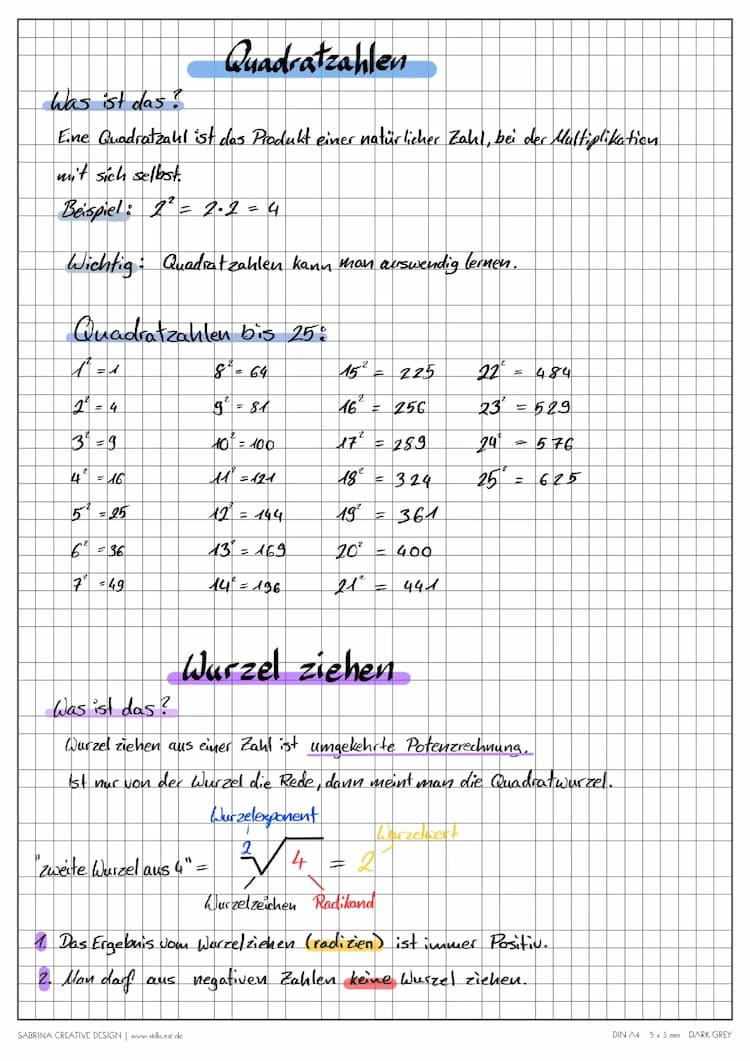 Quadratzahlen
Was ist das?
Eine Quadratzahl ist das Produkt einer natürlicher Zahl, bei der Multiplikation
mit sich selbst.
Beispiel: 2² = 2·2 = 4
Wichtig: Quadratzahlen kann man auswendig lernen.
Quadratzahlen bis 25:
1² = 1 8² = 64 15² = 225 22² = 484
2² = 4 9² = 81 16² = 256 23² = 529
3² = 9 10² = 100 17² = 289 24² = 576
4² = 16 11² = 121 18² = 324 25² = 625
5² = 25 12² = 144 19² = 361
6² = 36 13² = 169 20² = 400
7² = 49 14² = 196 21² = 441
Wurzel ziehen
Was ist das?
Wurzel ziehen aus einer Zahl ist umgekehrte Potenzrechnung.
Ist nur von der Wurzel die Rede, dann meint man die Quadratwurzel.
Wurzelexponent
Wurzelwert
"zweite Wurzel aus 4" = ²√4 = 2
Wurzelzeichen Radikand
1. Das Ergebnis vom Wurzelziehen (radizien) ist immer Positiv.
2. Man darf aus negativen Zahlen keine Wurzel ziehen.
SABRINA CREATIVE DESIGN | www.stilkunst.de DIN A4 5 x 5 mm DARK GREY